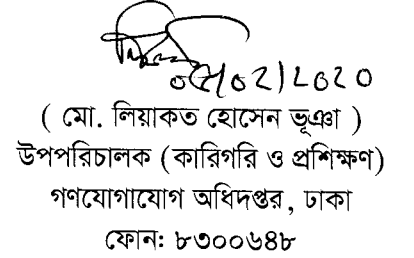 ০৫/০২/২০২০
( মো. লিয়াকত হোসেন ভূঞা )
উপপরিচালক (কারিগরি ও প্রশিক্ষণ)
গণযোগাযোগ অধিদপ্তর, ঢাকা
ফোন: ৮৩০০৬৪৮